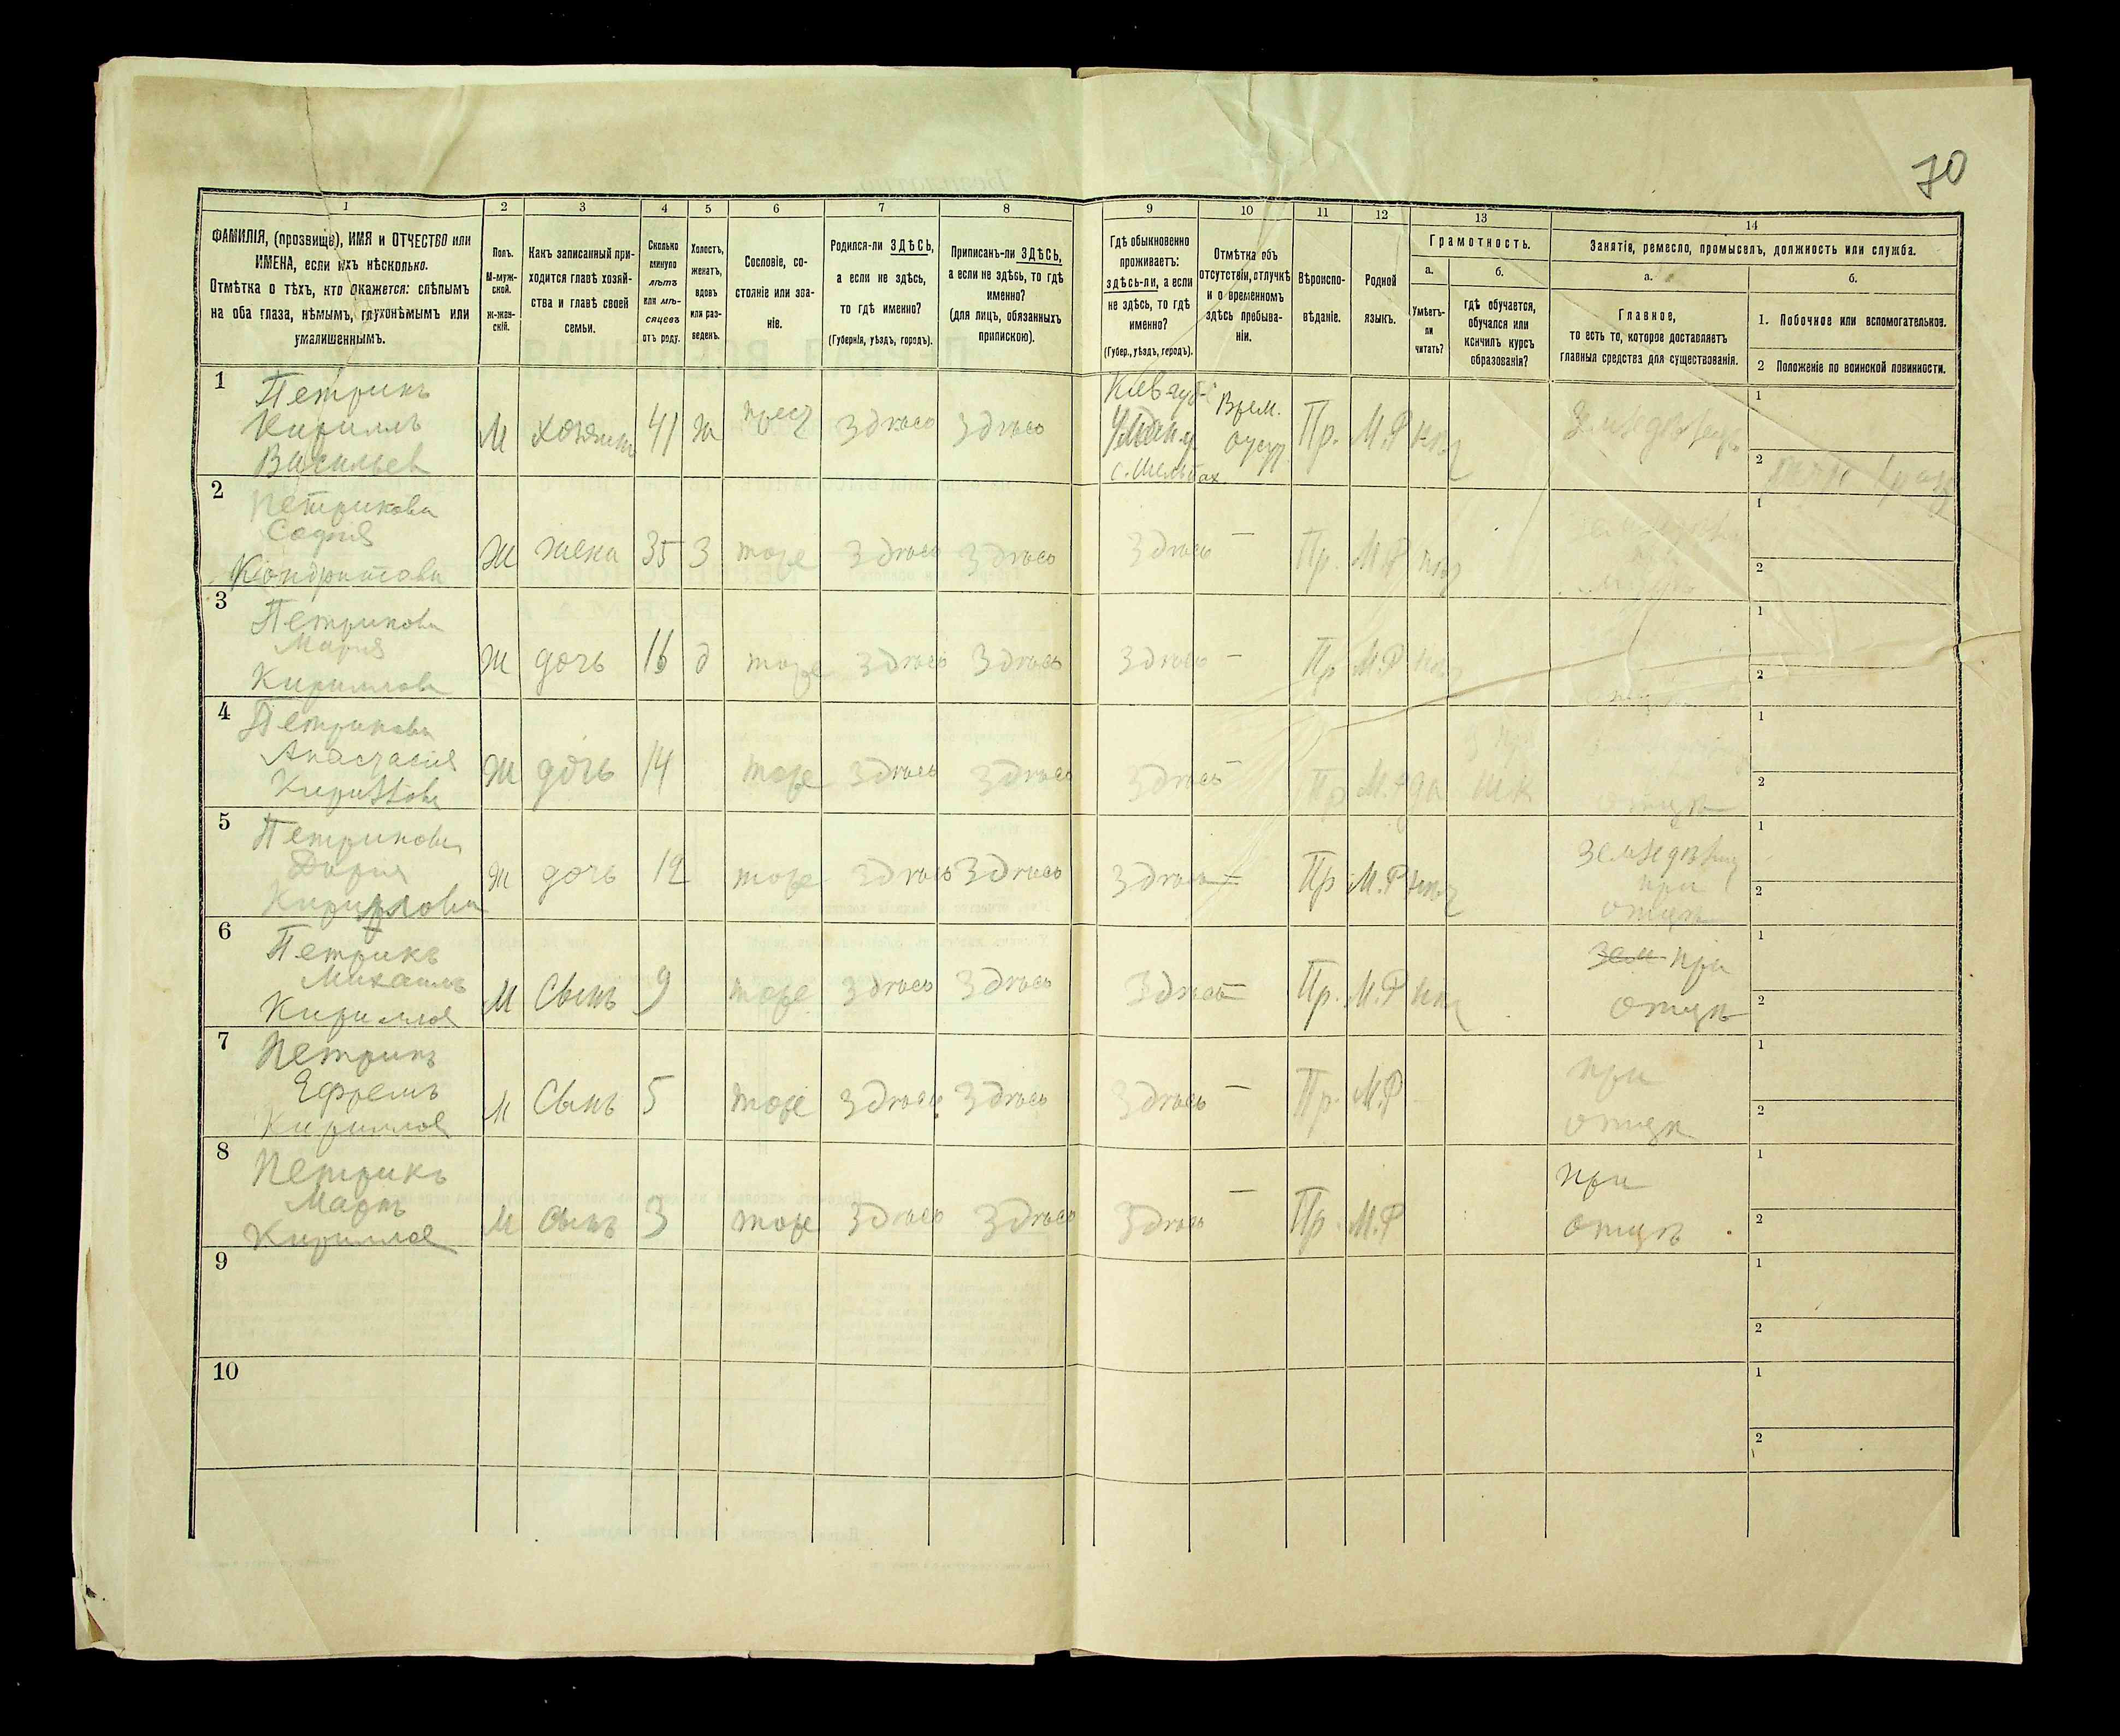 70
1 2 3 4 5 6 7 8 9 10 11 12 13 14
ФАМИЛІЯ, (прозвище), ИМЯ и ОТЧЕСТВО или
ИМЕНА, если ихъ нѣсколько.
Отмѣтка о тѣхъ, кто окажется: слѣпымъ
на оба глаза, нѣмымъ, глухонѣмымъ или
умалишеннымъ.
Полъ.
М-муж-
ской.
Ж-жен-
скій.
Какъ записанный при-
ходится главѣ хозяй-
ства и главѣ своей
семьи.
Сколько
минуло
лѣтъ
или мѣ-
сяцевъ
отъ роду.
Холостъ,
женатъ,
вдовъ
или раз-
веденъ.
Сословіе, со-
стояніе или зва-
ніе.
Родился-ли ЗДѢСЬ,
а если не здѣсь,
то гдѣ именно?
(Губернія, уѣздъ, городъ).
Приписанъ-ли ЗДѢСЬ,
а если не здѣсь, то гдѣ
именно?
(для лицъ, обязанныхъ
припискою).
Гдѣ обыкновенно
проживаетъ:
здѣсь-ли, а если
не здѣсь, то гдѣ
именно?
(Губер., уѣздъ, городъ).
Отмѣтка объ
отсутствіи, отлучкѣ
и о временномъ
здѣсь пребыва-
ніи.
Вѣроиспо-
вѣданіе.
Родной
языкъ.
Грамотность.
а.
Умѣетъ-
ли
читать?
б.
гдѣ обучается,
обучался или
кончилъ курсъ
образованія?
Занятіе, ремесло, промыселъ, должность или служба.
а.
Главное,
то есть то, которое доставляетъ
главныя средства для существованія.
б.
1. Побочное или вспомогательное.
2 Положеніе по воинской повинности.
1 Петрикъ
Кириллъ
Васильев
М хозяинъ 41 ж крест здѣсь здѣсь
Кіев губ
Уман у.
Врем.
Пр. М.Р нѣт
1
2
2 Петрикова
Софія
Кондратова
Ж жена 35 З тоже здѣсь здѣсь здѣсь — Пр. М.Р нѣт
1
2
3 Петрикова
Марія
Кирилова
Ж дочь 16 д тоже здѣсь здѣсь здѣсь — Пр М.Р нѣт
1
2
4 Петрикова
Анастасія
Кирилова
Ж дочь 14 тоже здѣсь здѣсь здѣсь — Пр М.Р да шк
отцѣ
1
2
5 Петрикова
Дарія
Кирилова
Ж дочь 12 тоже здѣсь здѣсь здѣсь — Пр М.Р нѣт
при
отцѣ
1
2
6 Петрикъ
Михаилъ
Кирилов
М Сынъ 9 тоже здѣсь здѣсь здѣсь — Пр. М.Р нѣт
зем при
отцѣ
1
2
7 Петрикъ
Ефремъ
Кирилов
М Сынъ 5 тоже здѣсь здѣсь здѣсь — Пр. М.Р
при
отцѣ
1
2
8 Петрикъ
Маркъ
Кирилов
М сынъ 3 тоже здѣсь здѣсь здѣсь — Пр. М.Р
при
отцѣ
1
2
9
1
2
10
1
2